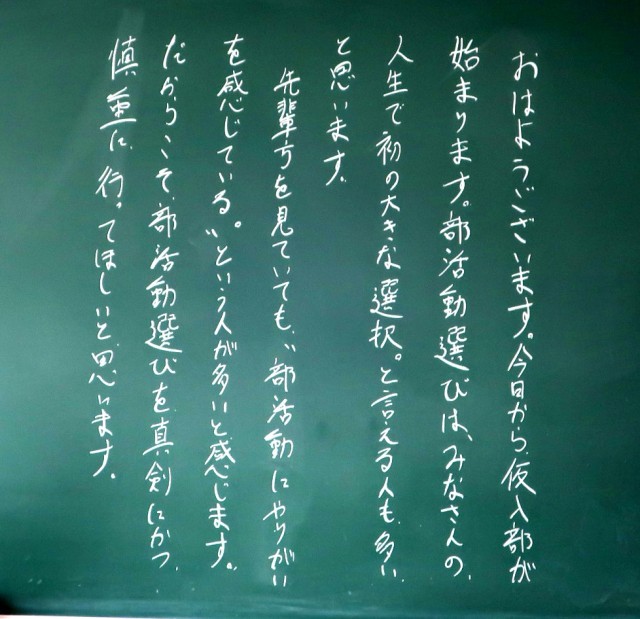 おはようございます。今日から、仮入部が
始まります。部活動選びは、みなさんの、
人生で初の大きな選択。と言える人も、多い、
と思います。
先輩方を見ていても、〝部活動にやりがい
を感じている。〟という人が多いと感じます。
だからこそ、部活動選びを、真剣にかつ、
慎重に、行ってほしいと、思います。